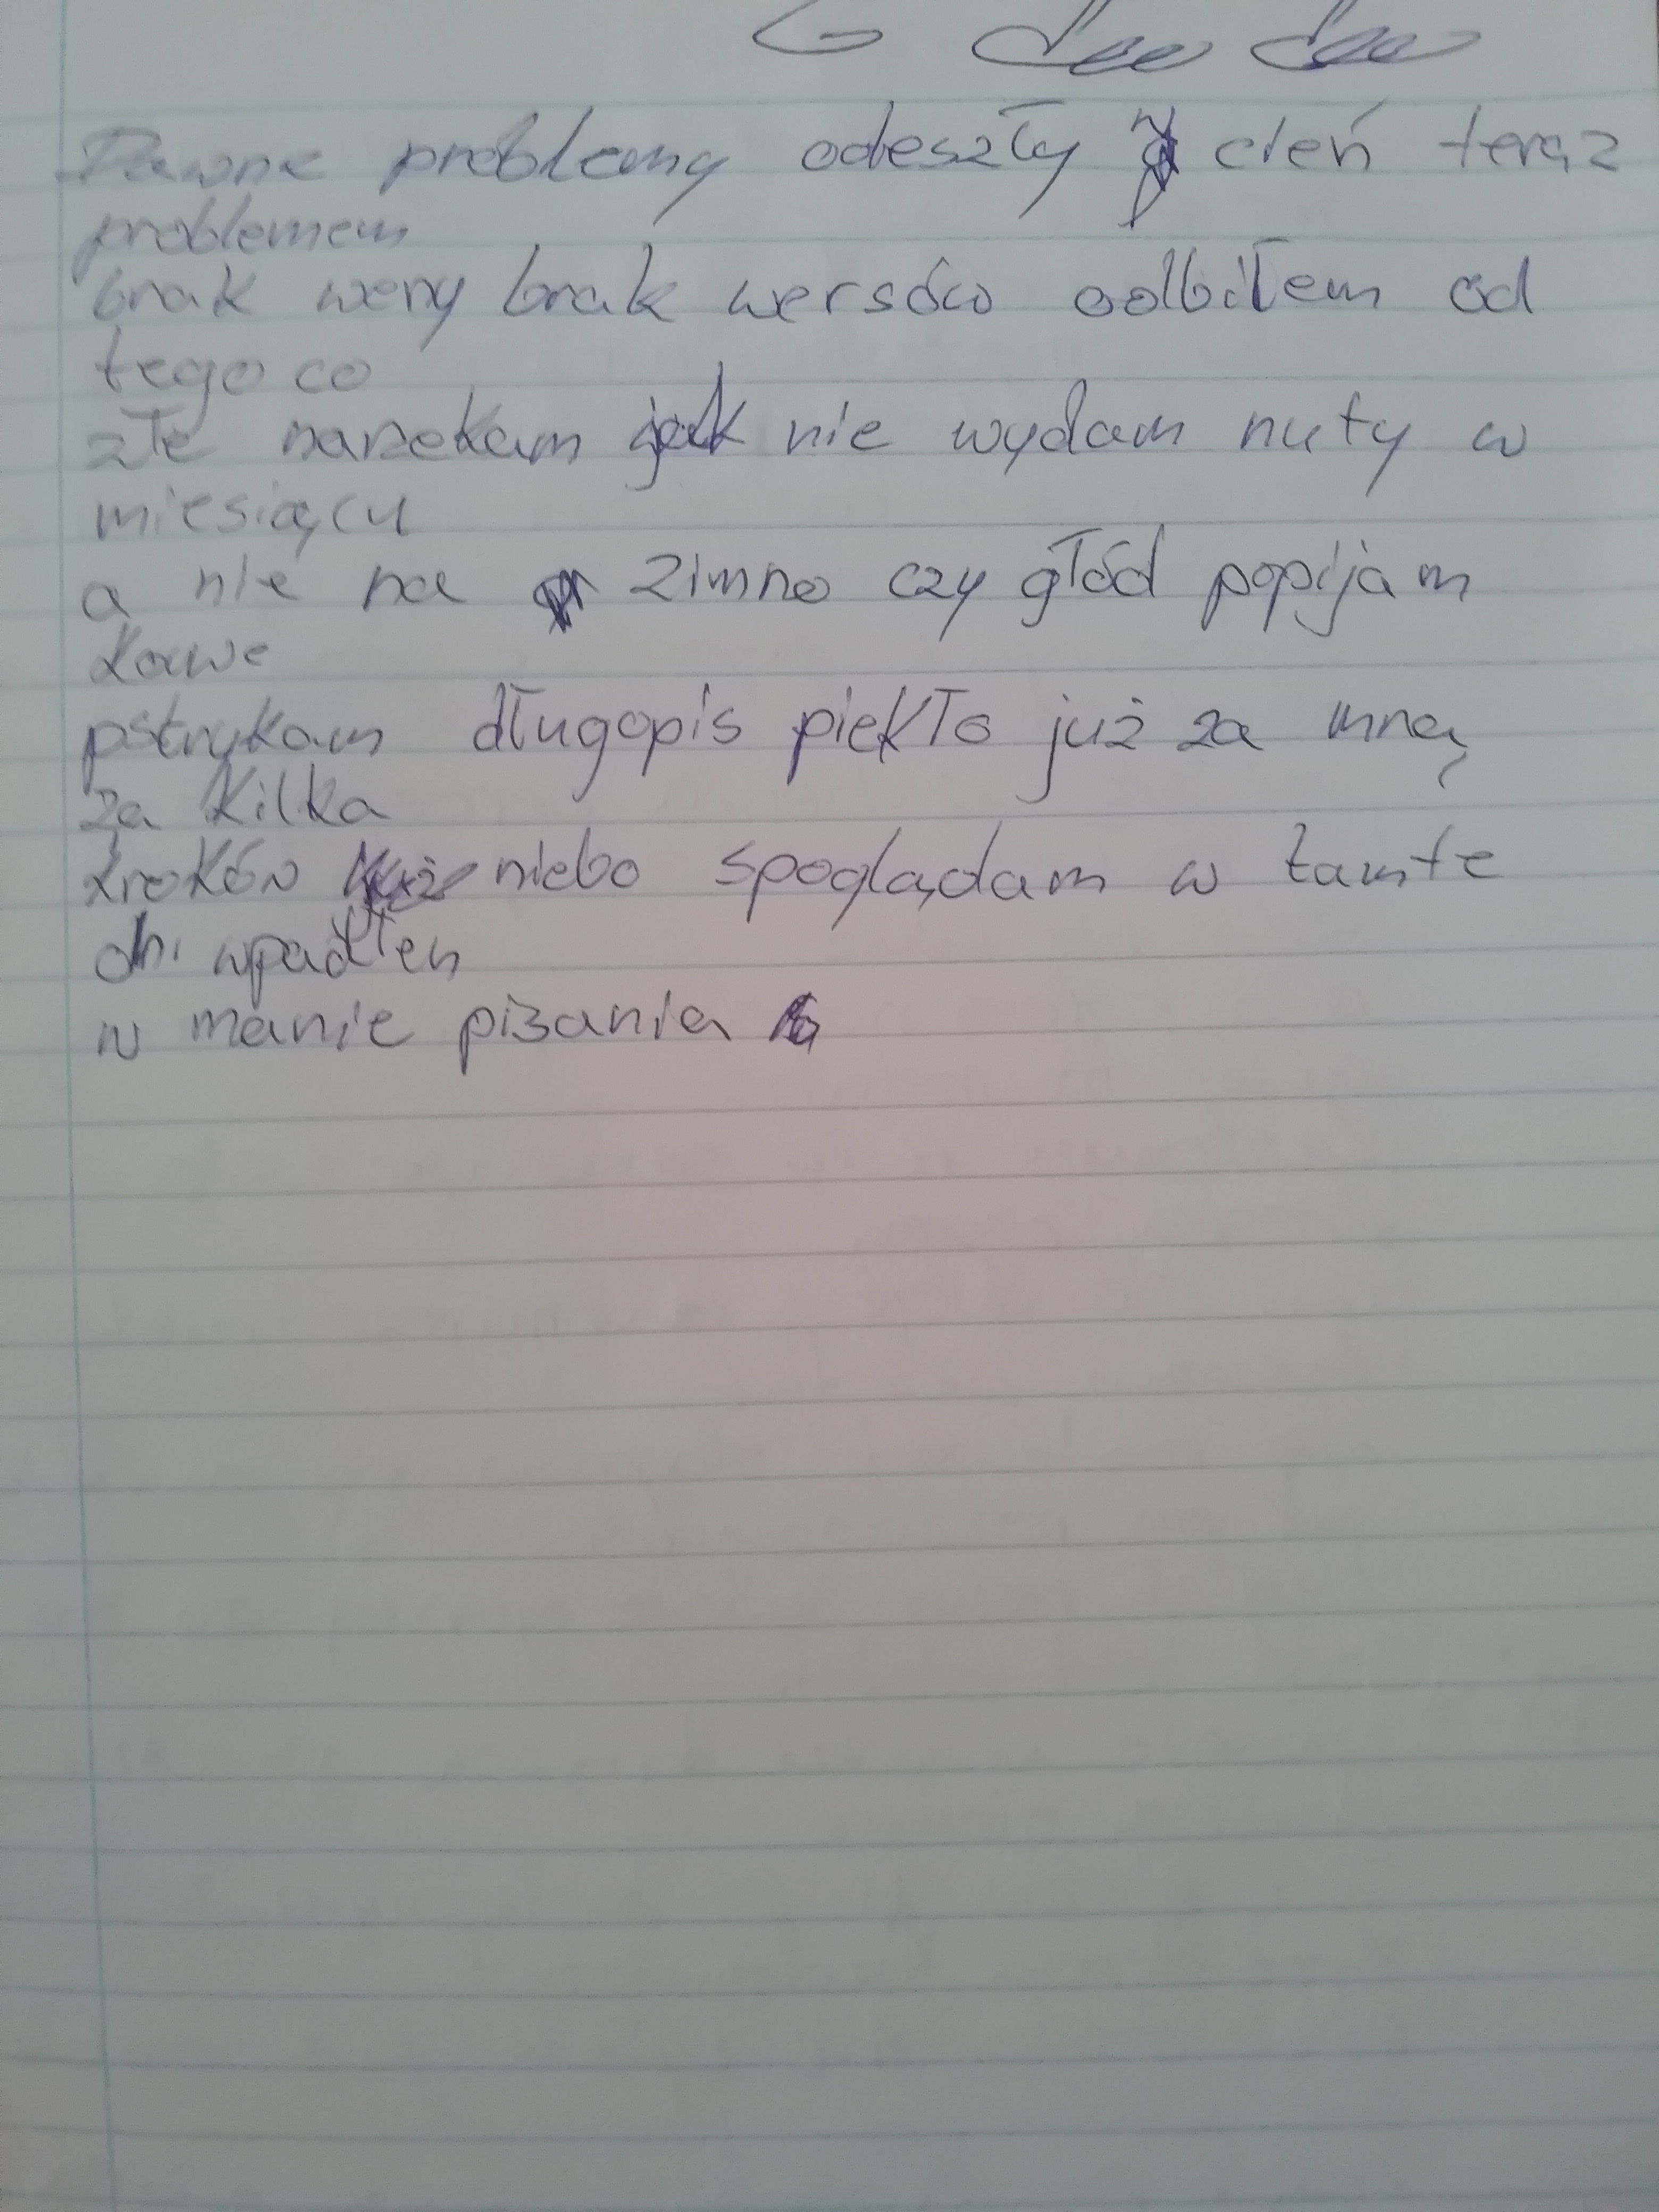 Dawne problemy odeszły w cień teraz
problemem
brak weny brak wersów odbiłem od
tego co
złe narzekam jak nie wydam nuty w
miesiącu
a nie na zimno czy głód popijam
kawe
pstrykam długopis piekło już za mną
za kilka
kroków niebo spoglądam w tamte
dni wpadłem
w manie pisania